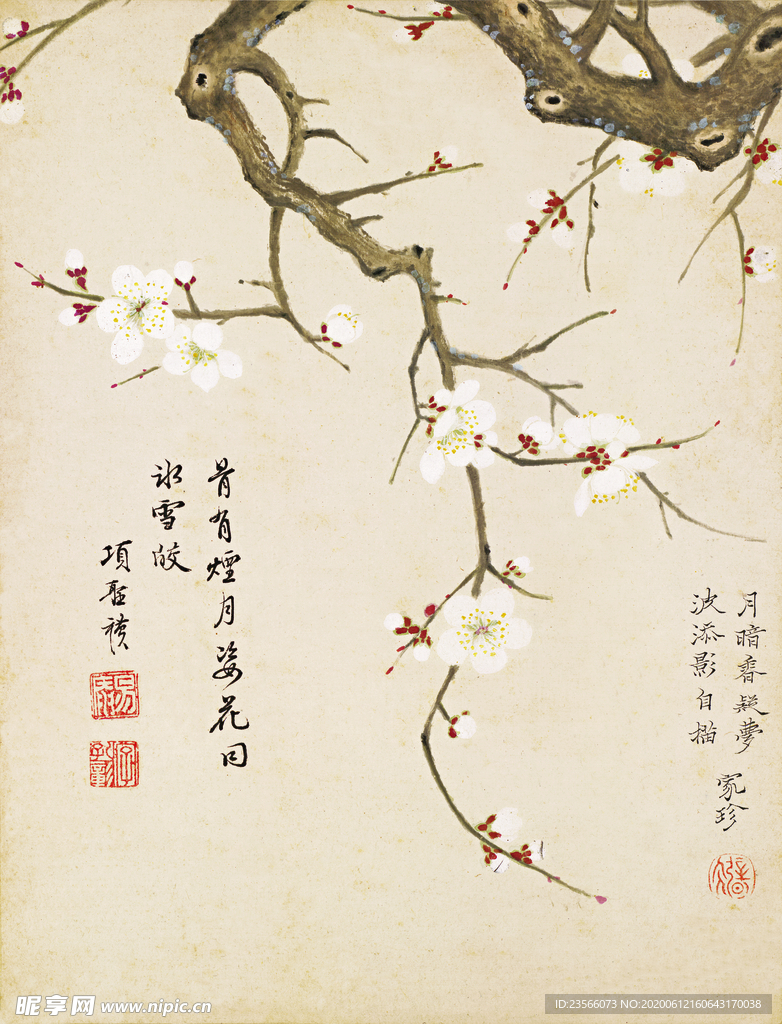 月暗香疑夢
波添影自描
家珍
骨有煙月姿花同
氷雪皎
項聖謨
昵享网 www.nipic.cn
ID:23566073 NO:20200612160643170038